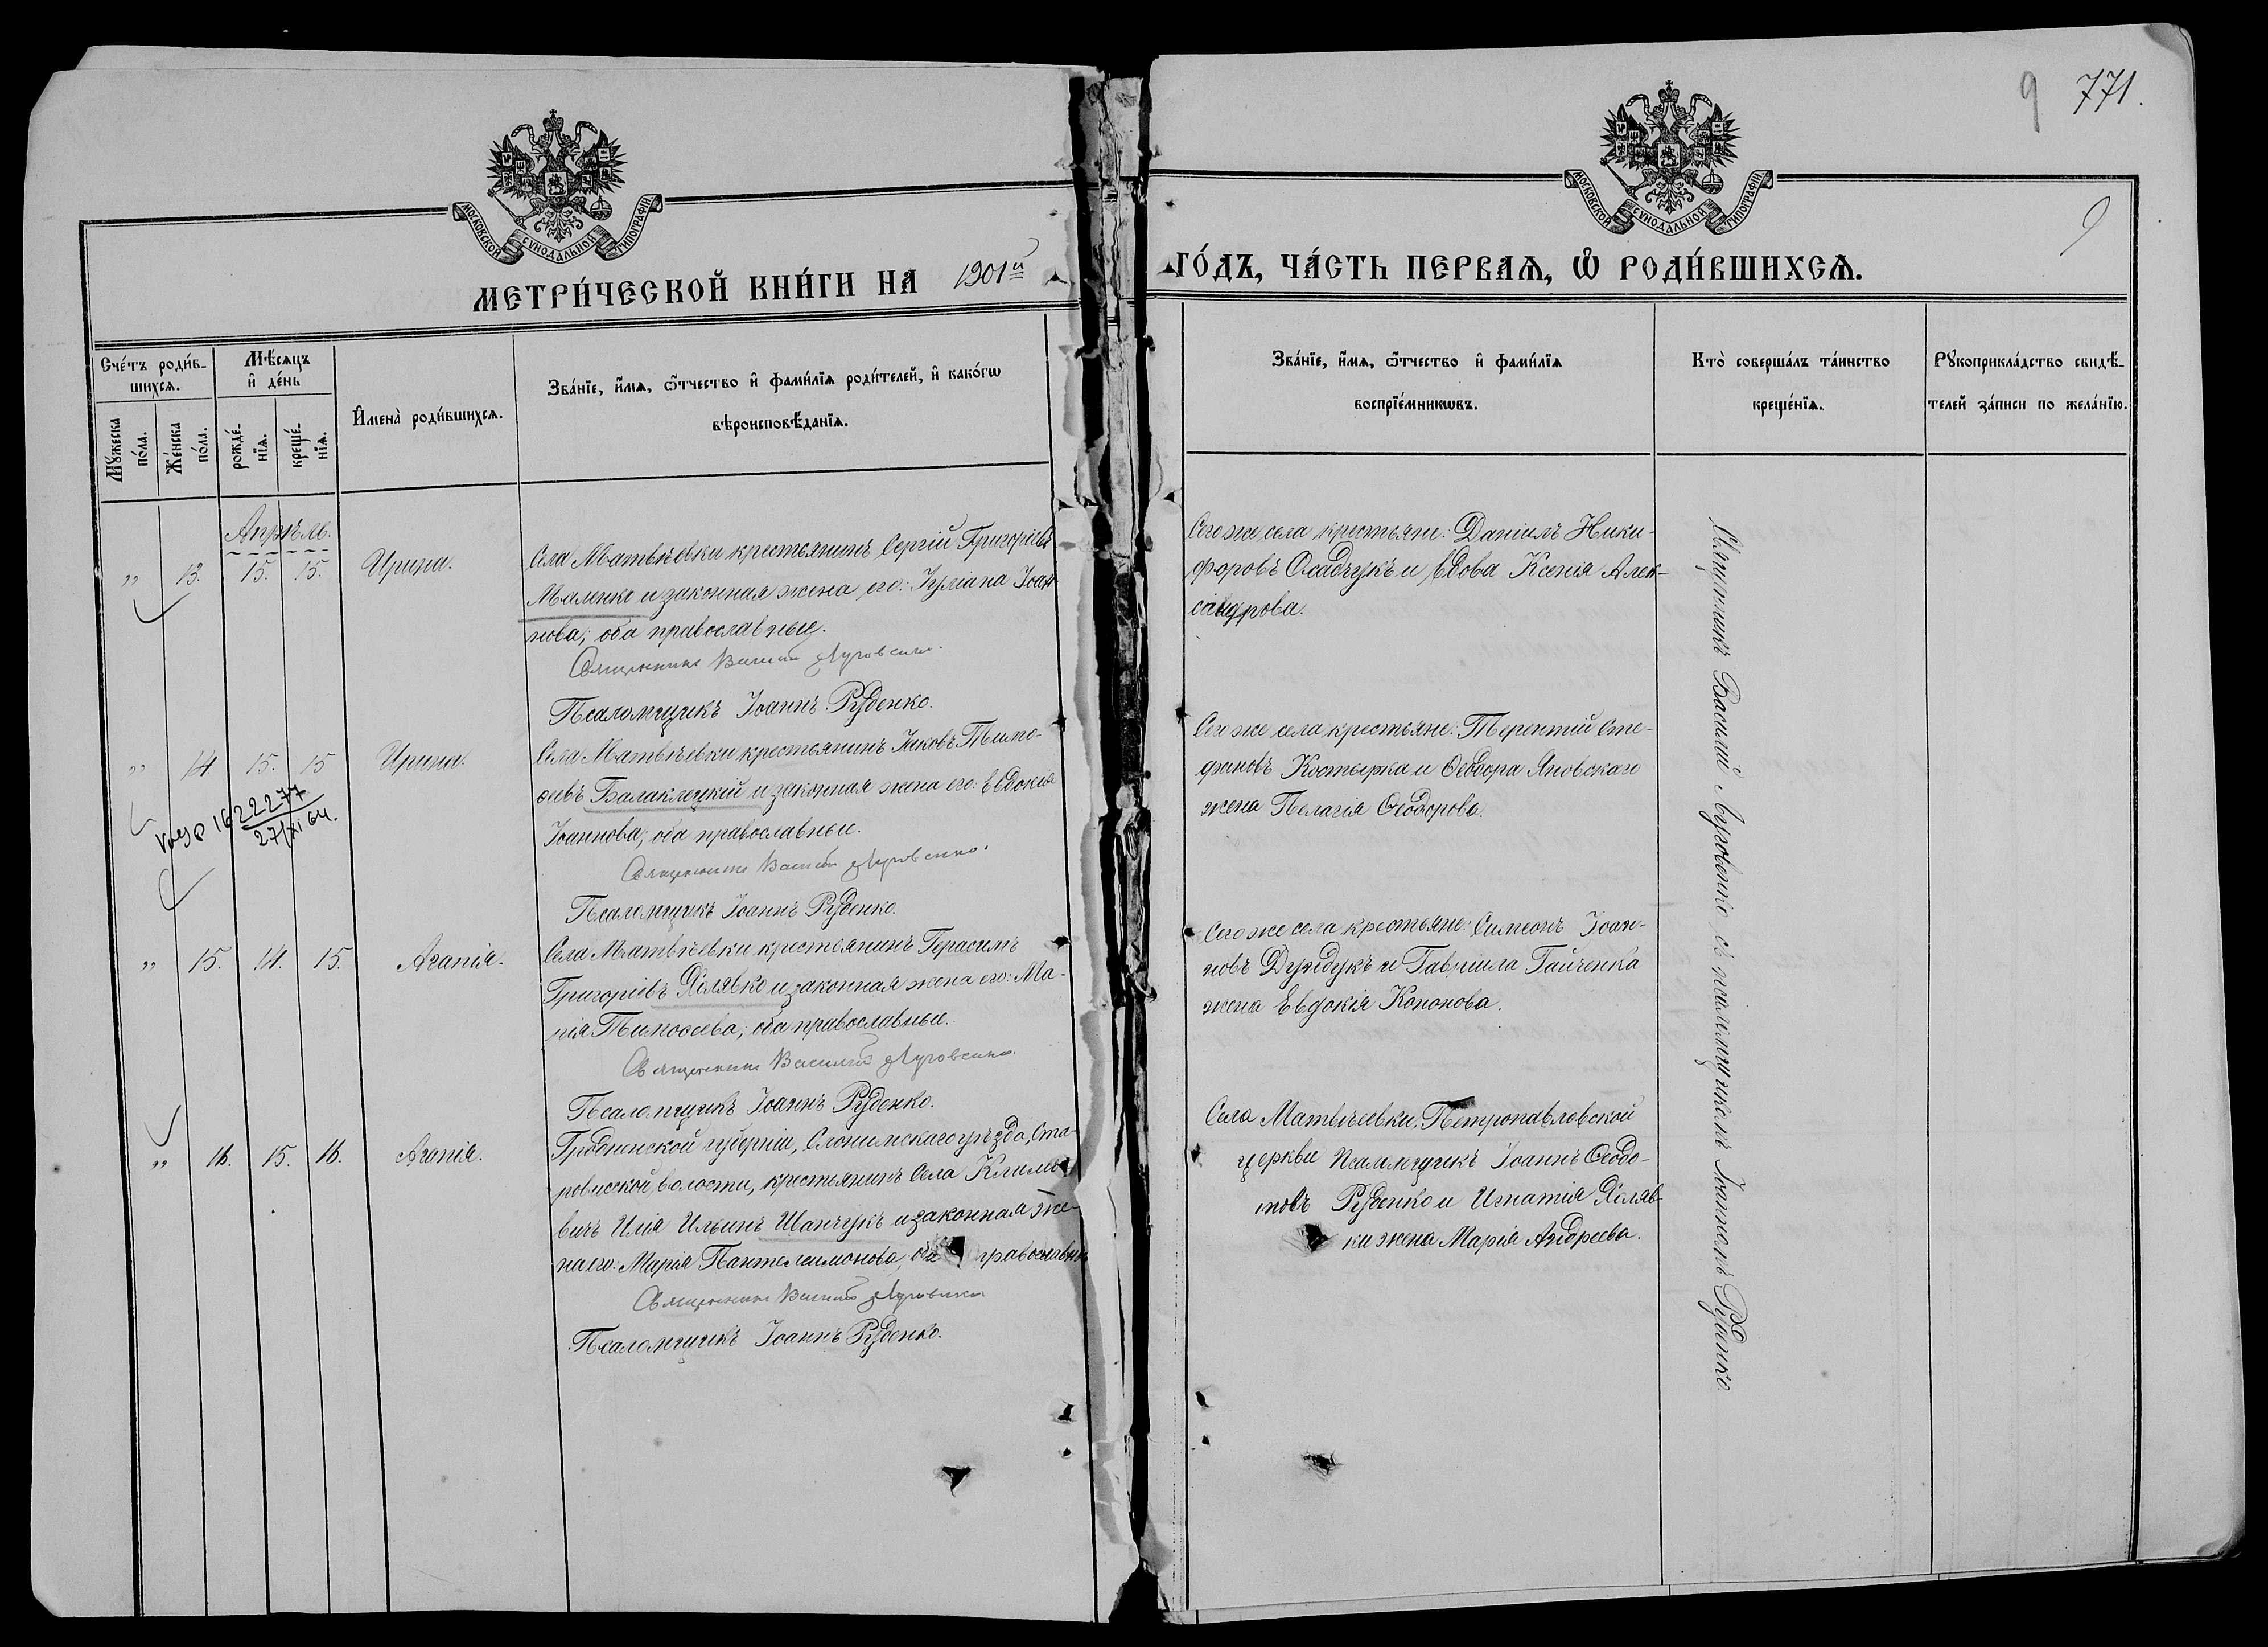 9 771.
9
МОСКОВСКОЙ СѴНОДАЛЬНОЙ ТИПОГРАФІИ
МОСКОВСКОЙ СѴНОДАЛЬНОЙ ТИПОГРАФІИ
МЕТРИ́ЧЕСКОЙ КНИ́ГИ НА 1901й
ГО́ДЪ, ЧА́СТЬ ПЕРВАѦ, Ѽ РОДИ́ВШИХСѦ.
Сче́тъ роди́в-
шихсѧ.
Мꙋ́жеска
по́ла.
Же́нска
по́ла.
Мѣ́сѧцъ
и҆ де́нь
рожде́-
нїѧ.
креще́-
нїѧ.
И҆мена̀ роди́вшихсѧ.
Зва́нїе, и҆́мѧ, ѻ҆́тчество и҆ фами́лїѧ роди́телей, и҆ како́гѡ
вѣроисповѣ́данїѧ.
Зва́нїе, и҆́мѧ, ѻ҆́тчество и҆ фами́лїѧ
воспрїе́мникѡвъ.
Кто̀ соверша́лъ та́инство
креще́нїѧ.
Рꙋкоприкла́дство свидѣ́-
телей за́писи по жела́нїю.
Апрѣль.
" 13. 15. 15. Ирина.
Села Матвѣевки крестьянинъ Сергій Григоріевъ
Маленко и законная жена его: Іуліана Іоан-
нова; оба православные.
Священникъ Василій Луговенко.
Псаломщикъ Іоаннъ Руденко.
Сего же села крестьяне: Даніилъ Ники-
форовъ Осадчукъ и вдова Ксенія Алек-
сандрова.
" 14 15. 15 Ирина.
Села Матвѣевки крестьянинъ Іаковъ Тимо-
ѳеевъ Балаклецкій и законная жена его: Евдокія
Іоаннова; оба православные.
Священникъ Василій Луговенко.
Псаломщикъ Іоаннъ Руденко.
1622277
27/XI 64.
Сего же села крестьяне: Терентій Сте-
фановъ Костырка и Ѳеодора Яновскаго
жена Пелагія Ѳеодорова.
" 15. 14. 15. Агапія.
Села Матвѣевки крестьянинъ Герасимъ
Григоріевъ Халявко и законная жена его: Ма-
рія Тимоѳеева; оба православные.
Священникъ Василій Луговенко.
Псаломщикъ Іоаннъ Руденко.
Сего же села крестьяне: Симеонъ Іоан-
новъ Дундукъ и Гавріила Гайченка
жена Евдокія Кононова.
" 16. 15. 16. Агапія.
Гродненской губерніи, Слонимскаго уѣзда, Ста-
ровисской волости, крестьянинъ Села Климо-
вичъ Илія Ильинъ Шанчукъ и законная же-
на его: Марія Пантелеимонова, оба православны
Священникъ Василій Луговенко
Псаломщикъ Іоаннъ Руденко.
Села Матвѣевки, Петропавловской
церкви Псаломщикъ Іоаннъ Ѳеодо-
товъ Руденко и Игнатія Халяв-
ки жена Марія Андреева.
Священникъ Василій Луговенко съ псаломщикомъ Іоанномъ Руденко.